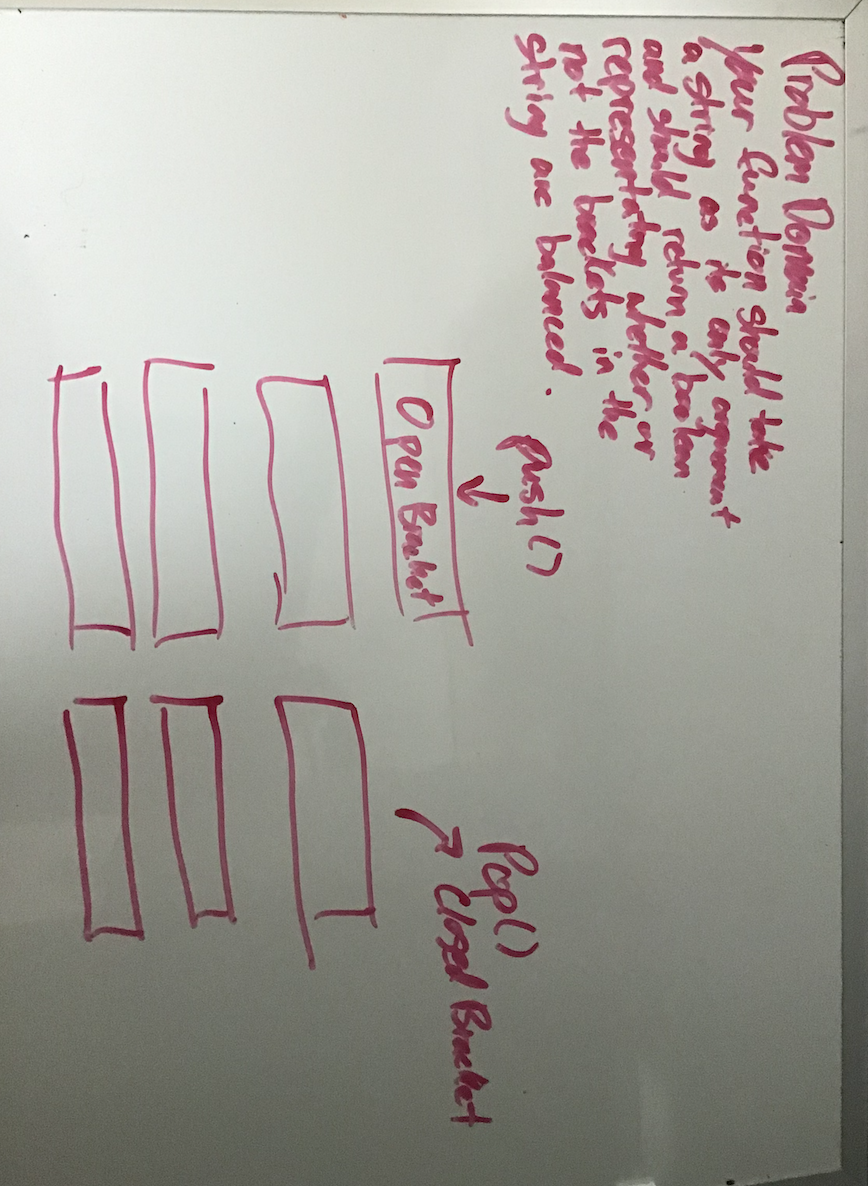 Problem Domain
Your function should take
a string as its only argument
and should return a boolean
representating whether or
not the brackets in the
string are balanced.
push()
Open Bracket
Pop()
Closed Bracket